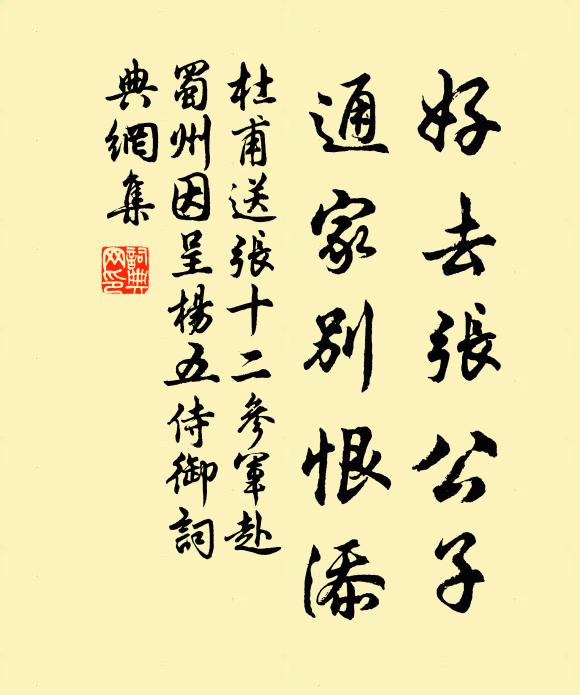 好去張公子
通家別恨添
杜甫送張十二參軍赴
蜀州因呈楊五侍御詞
典網集
詞典
网印